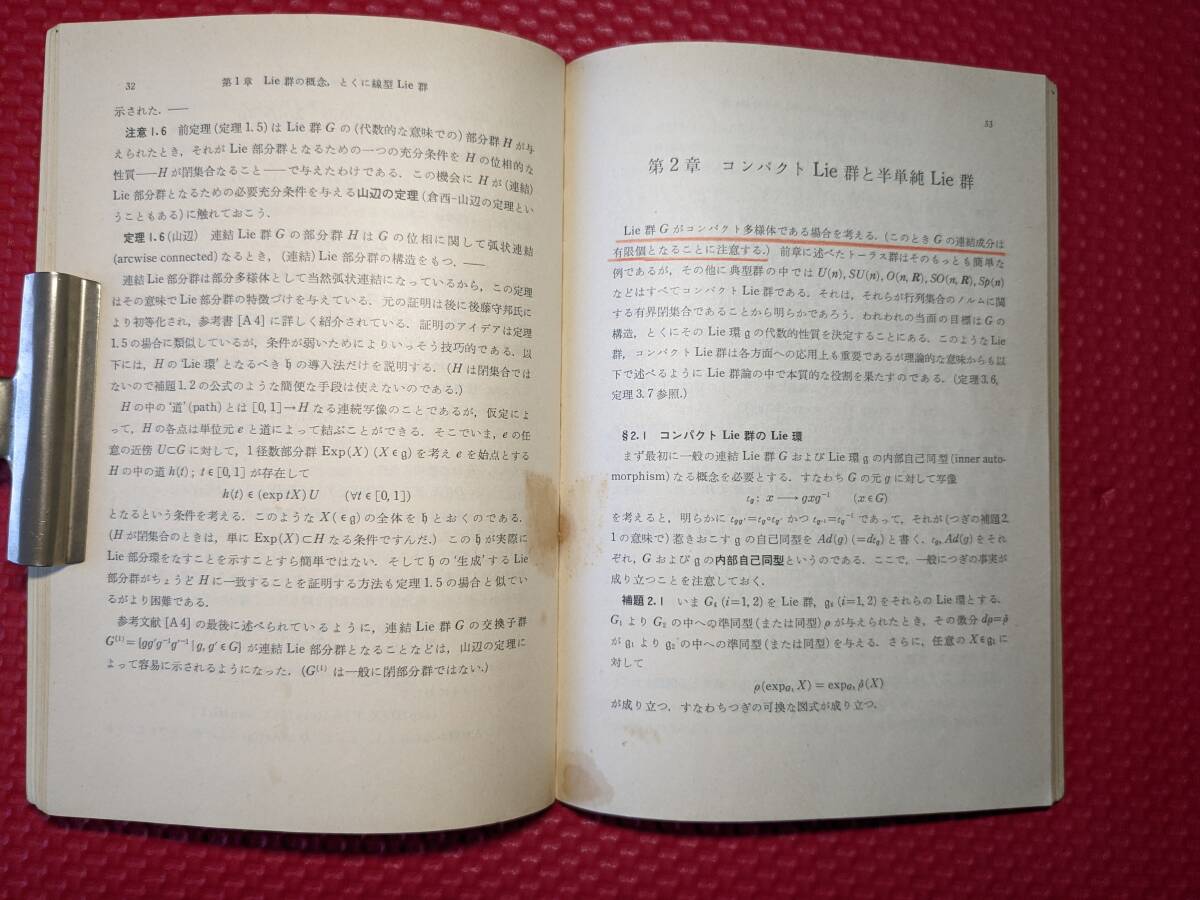 32
第1章 Lie 群の概念，とくに線型 Lie 群
示された．――
注意 1.6 前定理(定理1.5)は Lie 群 G の(代数的な意味での)部分群 H が与
えられたとき，それが Lie 部分群となるための一つの充分条件を H の位相的な
性質――H が閉集合なること――で与えたわけである．この機会に H が(連結)
Lie 部分群となるための必要充分条件を与える山辺の定理(倉西-山辺の定理とい
うこともある)に触れておこう．
定理 1.6(山辺) 連結 Lie 群 G の部分群 H は G の位相に関して弧状連結
(arcwise connected)なるとき，(連結) Lie 部分群の構造をもつ．――
連結 Lie 部分群は部分多様体として当然弧状連結になっているから，この定理
はその意味で Lie 部分群の特徴づけを与えている．元の証明は後に後藤守邦氏に
より初等化され，参考書[A4]に詳しく紹介されている．証明のアイデアは定理
1.5の場合に類似しているが，条件が弱いためによりいっそう技巧的である．以
下には，H の‘Lie 環’となるべき 𝔥 の導入法だけを説明する．(H は閉集合では
ないので補題1.2の公式のような簡便な手段は使えないのである．)
H の中の‘道’(path)とは [0,1]→H なる連続写像のことであるが，仮定によ
って，H の各点は単位元 e と道によって結ぶことができる．そこでいま，e の任
意の近傍 U⊂G に対して，1径数部分群 Exp(X) (X∈𝔤) を考え e を始点とする
H の中の道 h(t)；t∈[0,1] が存在して
h(t)∈(exp tX)U (∀t∈[0,1])
となるという条件を考える．このような X(∈𝔤)の全体を 𝔥 とおくのである．
(H が閉集合のときは，単に Exp(X)⊂H なる条件ですんだ．) この 𝔥 が実際に
Lie 部分環をなすことを示すことすら簡単ではない．そして 𝔥 の‘生成’する Lie
部分群がちょうど H に一致することを証明する方法も定理1.5の場合と似てい
るがより困難である．
参考文献[A4]の最後に述べられているように，連結 Lie 群 G の交換子群
G⁽¹⁾={gg′g⁻¹g′⁻¹|g, g′∈G} が連結 Lie 部分群となることなどは，山辺の定理に
よって容易に示されるようになった．(G⁽¹⁾ は一般に閉部分群ではない．)
33
第2章 コンパクト Lie 群と半単純 Lie 群
Lie 群 G がコンパクト多様体である場合を考える．(このとき G の連結成分は
有限個となることに注意する．) 前章に述べたトーラス群はそのもっとも簡単な
例であるが，その他に典型群の中では U(n), SU(n), O(n, R), SO(n, R), Sp(n)
などはすべてコンパクト Lie 群である．それは，それらが行列集合のノルムに関
する有界閉集合であることから明らかであろう．われわれの当面の目標は G の
構造，とくにその Lie 環 𝔤 の代数的性質を決定することにある．このような Lie
群，コンパクト Lie 群は各方面への応用上も重要であるが理論的な意味からも以
下で述べるように Lie 群論の中で本質的な役割を果たすのである．(定理3.6,
定理3.7参照．)
§2.1 コンパクト Lie 群の Lie 環
まず最初に一般の連結 Lie 群 G および Lie 環 𝔤 の内部自己同型(inner auto-
morphism)なる概念を必要とする．すなわち G の元 g に対して写像
ι_g: x ⟶ gxg⁻¹ (x∈G)
を考えると，明らかに ι_gg′=ι_g∘ι_g′ かつ ι_g⁻¹=ι_g⁻¹ であって，それが(つぎの補題2.
1の意味で)惹きおこす 𝔤 の自己同型を Ad(g)(=dι_g)と書く．ι_g, Ad(g) をそれ
ぞれ，G および 𝔤 の内部自己同型というのである．ここで，一般につぎの事実が
成り立つことを注意しておく．
補題2.1 いま G_i (i=1, 2) を Lie 群，𝔤_i (i=1, 2) をそれらの Lie 環とする．
G₁ より G₂ の中への準同型(または同型) ρ が与えられたとき，その微分 dρ=ρ̇
が 𝔤₁ より 𝔤₂ の中への準同型(または同型)を与える．さらに，任意の X∈𝔤₁ に
対して
ρ(exp_G₁ X) = exp_G₂ ρ̇(X)
が成り立つ．すなわちつぎの可換な図式が成り立つ．